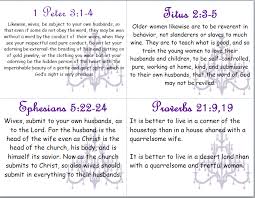 1 Peter 3:1-4
Likewise, wives, be subject to your own husbands, so
that even if some do not obey the word, they may be won
without a word by the conduct of their wives, when they
see your respectful and pure conduct. Do not let your
adorning be external the braiding of hair and putting on
of gold jewelry, or the clothing you wear but let your
adorning be the hidden person of the heart with the
imperishable beauty of a gentle and quiet spirit, which in
God's sight is very precious.
Titus 2:3-5
Older women likewise are to be reverent in
behavior, not slanderers or slaves to much
wine. They are to teach what is good, and so
train the young women to love their
husbands and children, to be self-controlled,
pure, working at home, kind, and submissive
to their own husbands, that the word of God
may not be reviled
Ephesians 5:22-24
Wives, submit to your own husbands, as
to the Lord. For the husband is the
head of the wife even as Christ is the
head of the church, his body, and is
himself its savior. Now as the church
submits to Christ, so also wives should
submit in everything to their husbands.
Proverbs 21:9,19
It is better to live in a corner of the
housetop than in a house shared with a
quarrelsome wife.
It is better to live in a desert land than
with a quarrelsome and fretful woman.